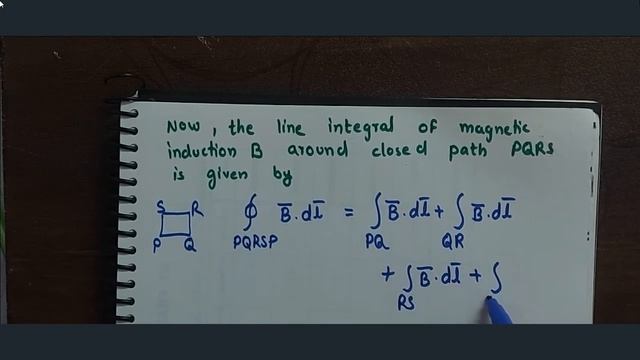 Now, the line integral of magnetic
induction B around closed path PQRS
is given by
S R ∮ B̅.dl̅ = ∫ B̅.dl̅ + ∫ B̅.dl̅
P Q PQRSP PQ QR
+ ∫ B̅.dl̅ + ∫
RS